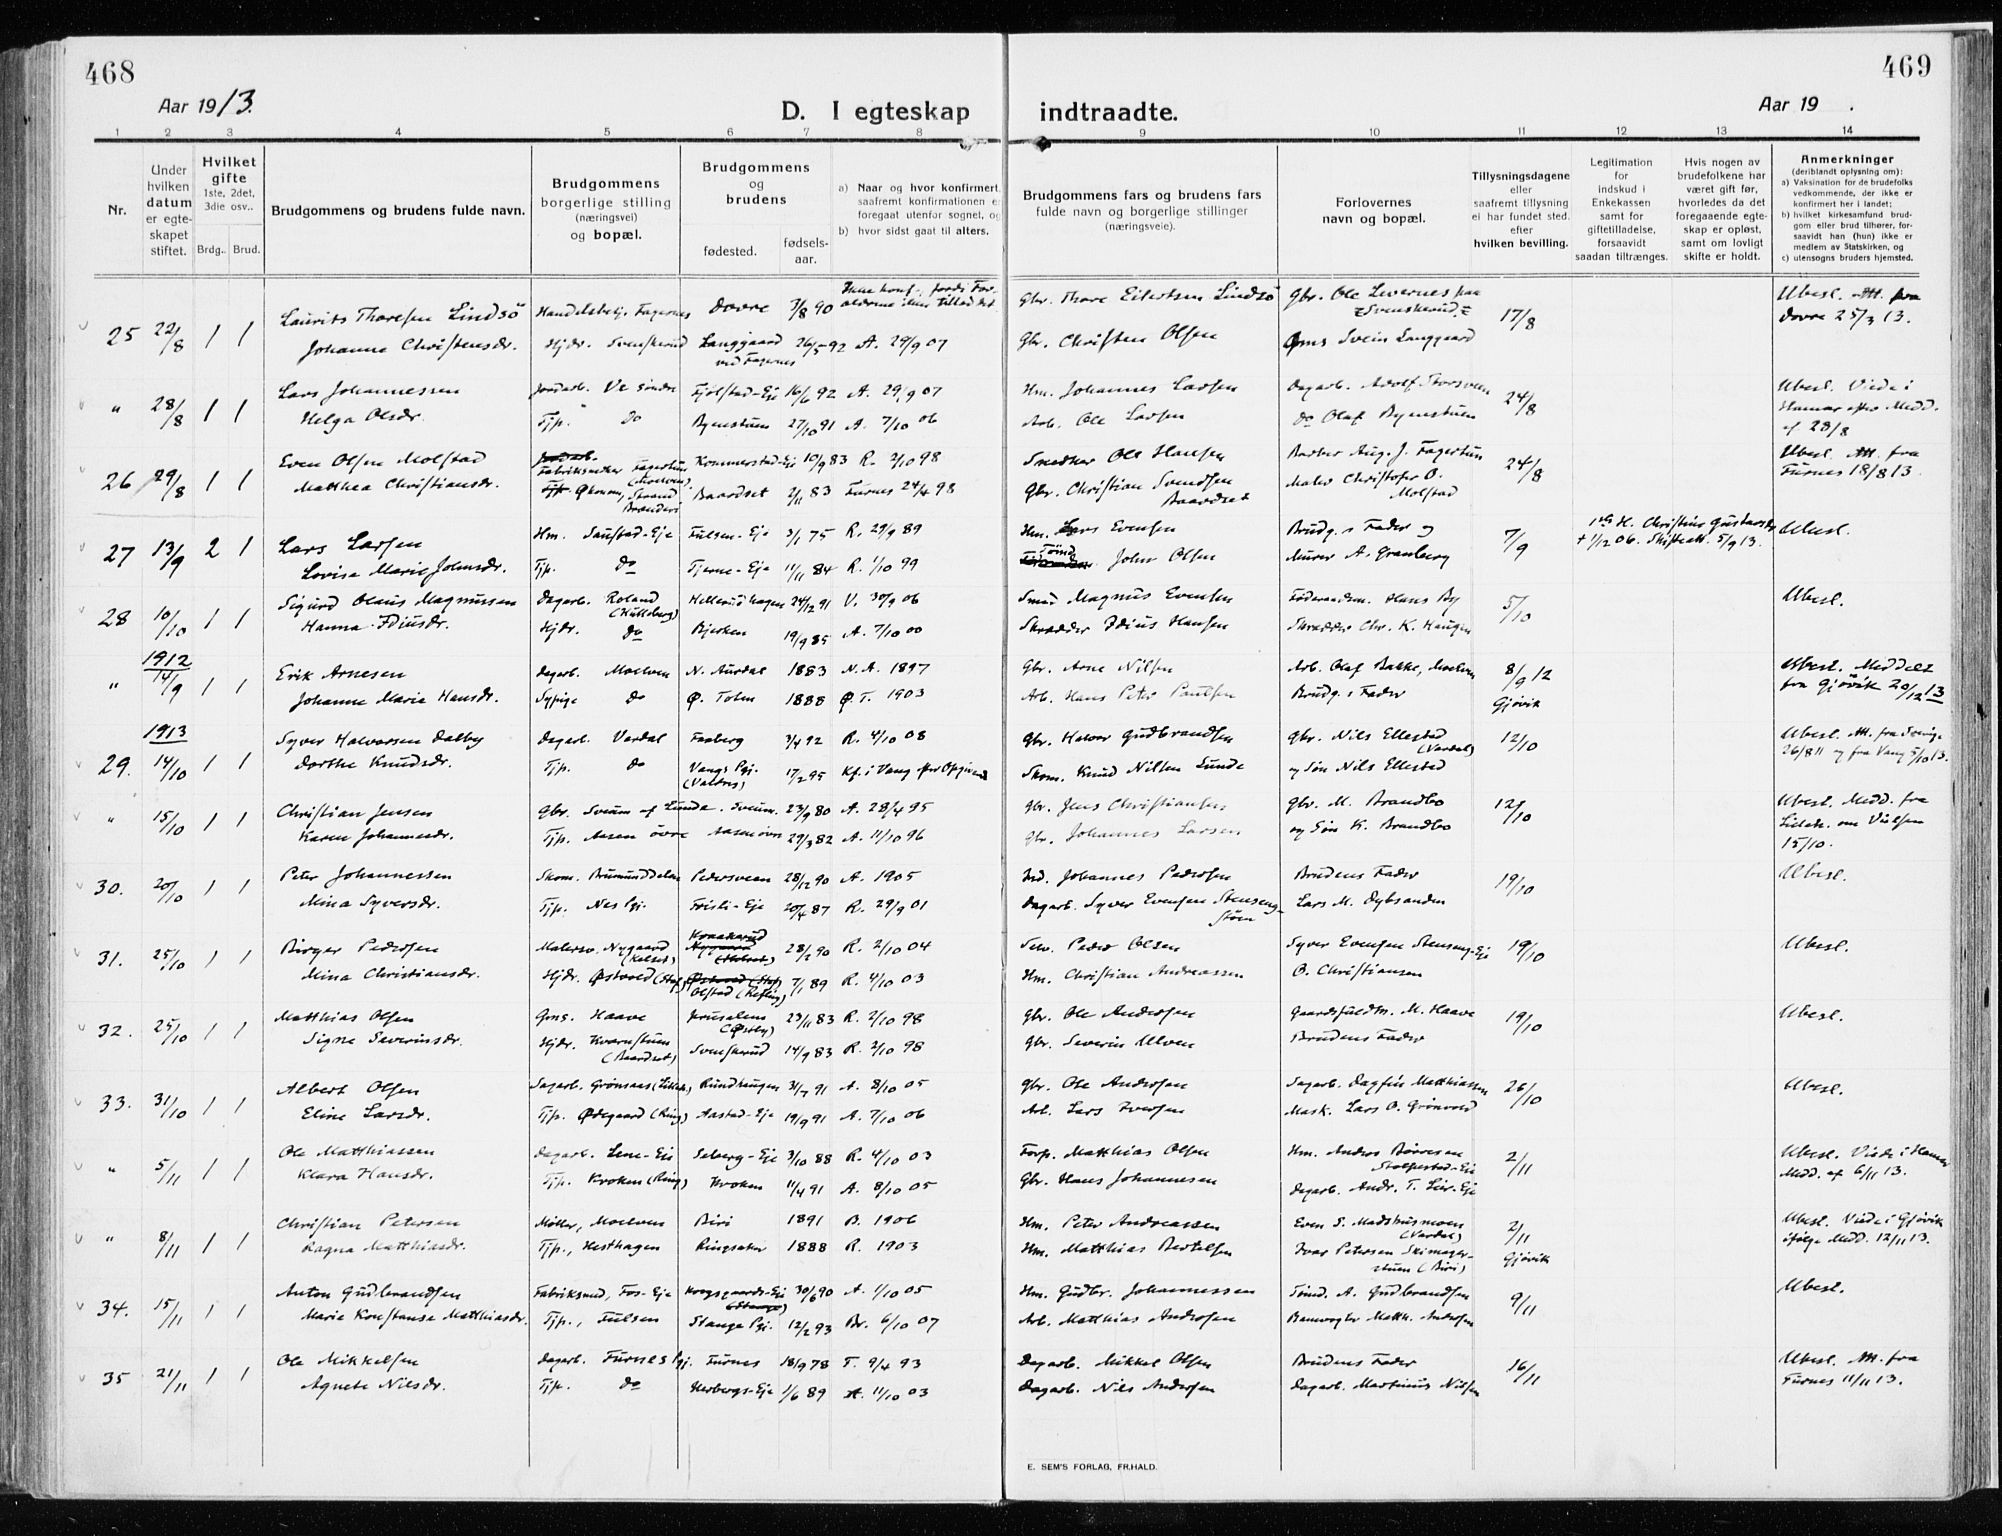 468
469
Aar 1913.
D. I egteskap indtraadte.
Aar 19 .
1 2 3 4 5 6 7 8 9 10 11 12 13 14
Nr.
Under hvilken datum er egteskapet stiftet.
Hvilket gifte 1ste, 2det, 3die osv..
Brdg. Brud.
Brudgommens og brudens fulde navn.
Brudgommens borgerlige stilling (næringsvei) og bopæl.
Brudgommens og brudens
fødested. fødsels-aar.
a) Naar og hvor konfirmert, saafremt konfirmationen er foregaat utenfor sognet, og
b) hvor sidst gaat til alters.
Brudgommens fars og brudens fars fulde navn og borgerlige stillinger (næringsveie).
Forlovernes navn og bopæl.
Tillysningsdagene eller saafremt tillysning ei har fundet sted. efter hvilken bevilling.
Legitimation for indskud i Enkekassen samt for giftetilladelse, forsaavidt saadan tiltrænges.
Hvis nogen av brudefolkene har været gift før, hvorledes da det foregaaende egteskap er opløst, samt om lovligt skifte er holdt.
Anmerkninger (deriblandt oplysning om):
a) Vaksination for de brudefolks vedkommende, der ikke er konfirmert her i landet;
b) hvilket kirkesamfund brudgom eller brud tilhører, forsaavidt han (hun) ikke er medlem av Statskirken, og
c) utensogns bruders hjemsted.
25 22/8 1 1 Laurits Thoresen Lindsö Handelsbetj. Fagernes Dovre 7/8 90 Gbr. Thore Eilertsen Lindsö Gbr. Ole Levernes 17/8 Ubesl. Att. fra
Johanne Christensdr. Hjdr. Svenskerud Langgaard ved Fagernes 26/5 92 A. 29/9 07 Gbr. Christen Olsen Svein Langgaard Dovre 25/3 13.
" 28/8 1 1 Lars Johannessen Jordarb. Ve söndre Fjölstad-Eje 16/6 92 A. 29/9 07 Hm. Johannes Larsen Dagarb. Adolf Storsveen 24/8 Ubesl. Viede i
Helga Olsdr. Tjp. Do Byenstuen 27/10 91 A. 7/10 06 Arb. Ole Larsen Do Olaf Byenstuen Hamar efter Medd. af 28/8
26 29/8 1 1 Even Olsen Molstad Fabriksnedker Fagertun (Moelven) Kommerstad-Eje 10/9 83 R. 2/10 98 Snedker Ole Hansen Barber Aug. J. Fagertun 24/8 Ubesl. Att. fra
Matthea Christiansdr. Økonom, Strand Brænderi Baardset 2/11 83 Furnes 24/4 98 Gbr. Christian Svendsen Baardset Maler Christofer O. Molstad Furnes 18/8 13.
27 13/9 2 1 Lars Larsen Hm. Saustad-Eje Fulsen-Eje 3/1 75 R. 29/9 89 Hm. Lars Evensen Brudg.s Fader og 7/9 1ste H. Christine Gustavsdr. Ubesl.
Lovise Marie Johnsdr. Tjp. Do Tjerne-Eje 11/11 84 R. 1/10 99 Tömd. John Olsen Murer A. Granberg † 1/12 06. Skifteatt. 5/9 13.
28 10/10 1 1 Sigurd Olaus Magnussen Dagarb. Roland (Hullsberg) Hellerudhagen 24/12 91 V. 30/9 06 Smed Magnus Evensen Föderaadsm. Hans By 5/10 Ubesl.
Hanna Idiusdr. Hjdr. Do Bjerken 19/9 85 A. 7/10 00 Skrædder Idius Hansen Skrædder Chr. K. Haugen
1912
" 14/9 1 1 Erik Arnesen Dagarb. Moelven N. Aurdal 1883 N.A. 1897 Gbr. Arne Nilsen Arb. Olaf Bakke, Moelven 8/9 12 Ubesl. Meddelt
Johanne Marie Hansdr. Sypige Do Ø. Toten 1888 Ø.T. 1903 Arb. Hans Peter Paulsen Brudg.s Fader Gjövik fra Gjövik 20/12 13
1913
29. 14/10 1 1 Syver Halvorsen Dalby Dagarb. Vardal Faaberg 3/4 92 R. 4/10 08 Gbr. Halvor Gudbrandsen Gbr. Nils Ellestad (Vardal) 12/10 Ubesl. Att. fra
Dorthe Knudsdr. Tjp. Do Vangs Pgj. (Valdres) 17/2 95 Kf. i Vang efter Opgivend. Skom. Knud Nilsen Lunde og Sön Nils Ellestad 26/8 11 og fra Vang 5/10 13.
" 15/10 1 1 Christian Jensen Gbr. Sveum af Lunde. Sveum. 23/9 80 A. 28/4 95 Gbr. Jens Christiansen Gbr. M. Brandbo 12/10 Ubesl. Medd. fra
Karen Johannesdr. Tjp. Aasen övre Aasen övre 29/3 82 A. 11/10 96 Gbr. Johannes Larsen og Sön K. Brandbo Lilleh. om Vielsen 15/10.
30. 20/10 1 1 Peter Johannessen Skom. Brumunddalen Pedersveen 28/12 90 A. 1905 Ind. Johannes Pedersen Brudens Fader 19/10 Ubesl.
Mina Syversdr. Tjp. Nes Pgj. Fristi-Eje 20/4 87 R. 29/9 01 Dagarb. Syver Evensen Stenseng Lars M. Dybsanden
31. 25/10 1 1 Birger Pedersen Malersv. Nygaard (Kalset) Kraakerud 28/2 90 R. 2/10 04 Selv. Peder Olsen Syver Evensen Stenseng-Eje 19/10 Ubesl.
Mina Christiansdr. Hjdr. Østvold (Stof) Olstad (Refling) 7/1 89 R. 4/10 03 Hm. Christian Andreassen O. Christiansen
32. 25/10 1 1 Matthias Olsen Gms. Haave Jerusalem (Østby) 23/11 83 R. 2/10 98 Gbr. Ole Andersen Gaardsfuldm. M. Haave 19/10 Ubesl.
Signe Severinsdr. Hjdr. Kvernstuen (Baardset) Svenskerud 14/9 83 R. 2/10 98 Gbr. Severin Ulven Brudens Fader
33. 31/10 1 1 Albert Olsen Sagarb. Grönaas (Lilleh.) Rundhaugen 31/7 91 A. 8/10 05 Gbr. Ole Andersen Sagarb. Dagfin Matthiassen 26/10 Ubesl.
Eline Larsdr. Tjp. Ødegaard (Ring) Aastad-Eje 19/9 91 A. 7/10 06 Arb. Lars Iversen Mask. Lars O. Grönvold
" 5/11 1 1 Ole Matthiassen Dagarb. Lene-Eje Seberg-Eje 3/10 88 R. 4/10 03 Forp. Matthias Olsen Hm. Anders Börresen Stolpestad-Eje 2/11 Ubesl. Viede i Hamar
Klara Hansdr. Tjp. Kroken (Ring) Kroken 11/4 91 A. 8/10 05 Gbr. Hans Johannesen Dagarb. Andr. T. Lier-Eje Medd. af 6/11 13.
" 8/11 1 1 Christian Petersen Möller, Moelven Biri 1891 B. 1906 Hm. Peter Andreassen Even S. Madshusmoen (Vardal) 2/11 Ubesl. Viede i Gjövik
Ragna Matthiasdr. Tjp., Hesthagen Ringsaker 1888 R. 1903 Hm. Matthias Bertelsen Ivar Petersen Skimager-stuen (Biri) Gjövik ifölge Medd. 12/11 13.
34. 15/11 1 1 Anton Gudbrandsen Fabriksmed, Fos-Eje Korgsgaards-Eje 30/6 90 A. 1/10 05 Hm. Gudbr. Johannessen Tömd. A. Gudbrandsen 9/11 Ubesl.
Marie Konstanse Matthiasdr. Tjp., Fulsen Stange Pgj. 12/2 93 Br. 6/10 07 Arb. Matthias Andersen Banevogter Matth. Andersen
35 21/11 1 1 Ole Mikkelsen Dagarb. Furnes Pgj. Furnes 18/9 78 F. 9/4 93 Dagarb. Mikkel Olsen Brudens Fader 16/11 Ubesl. Att. fra
Agnete Nilsdr. Tjp. Do Herbergs-Eje 1/6 89 A. 11/10 03 Dagarb. Nils Andersen Dagarb. Martinius Nilsen Furnes 11/11 13.
E. SEM'S FORLAG, FR.HALD.